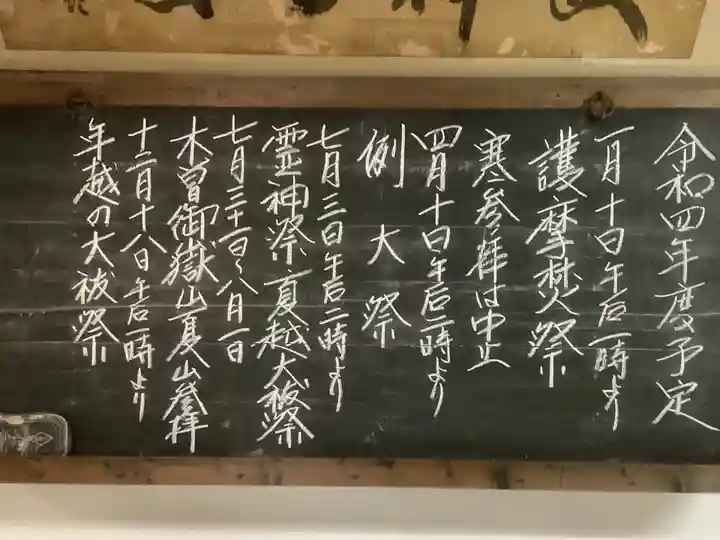 令和四年度予定
一月十日午后一時より
護摩焚祭
寒参拝は中止
四月十日午后一時より
例大祭
七月三日午后二時より
霊神祭夏越大祓祭
七月三十一日〜八月一日
木曽御嶽山夏山参拝
十二月十八日午后一時より
年越の大祓祭